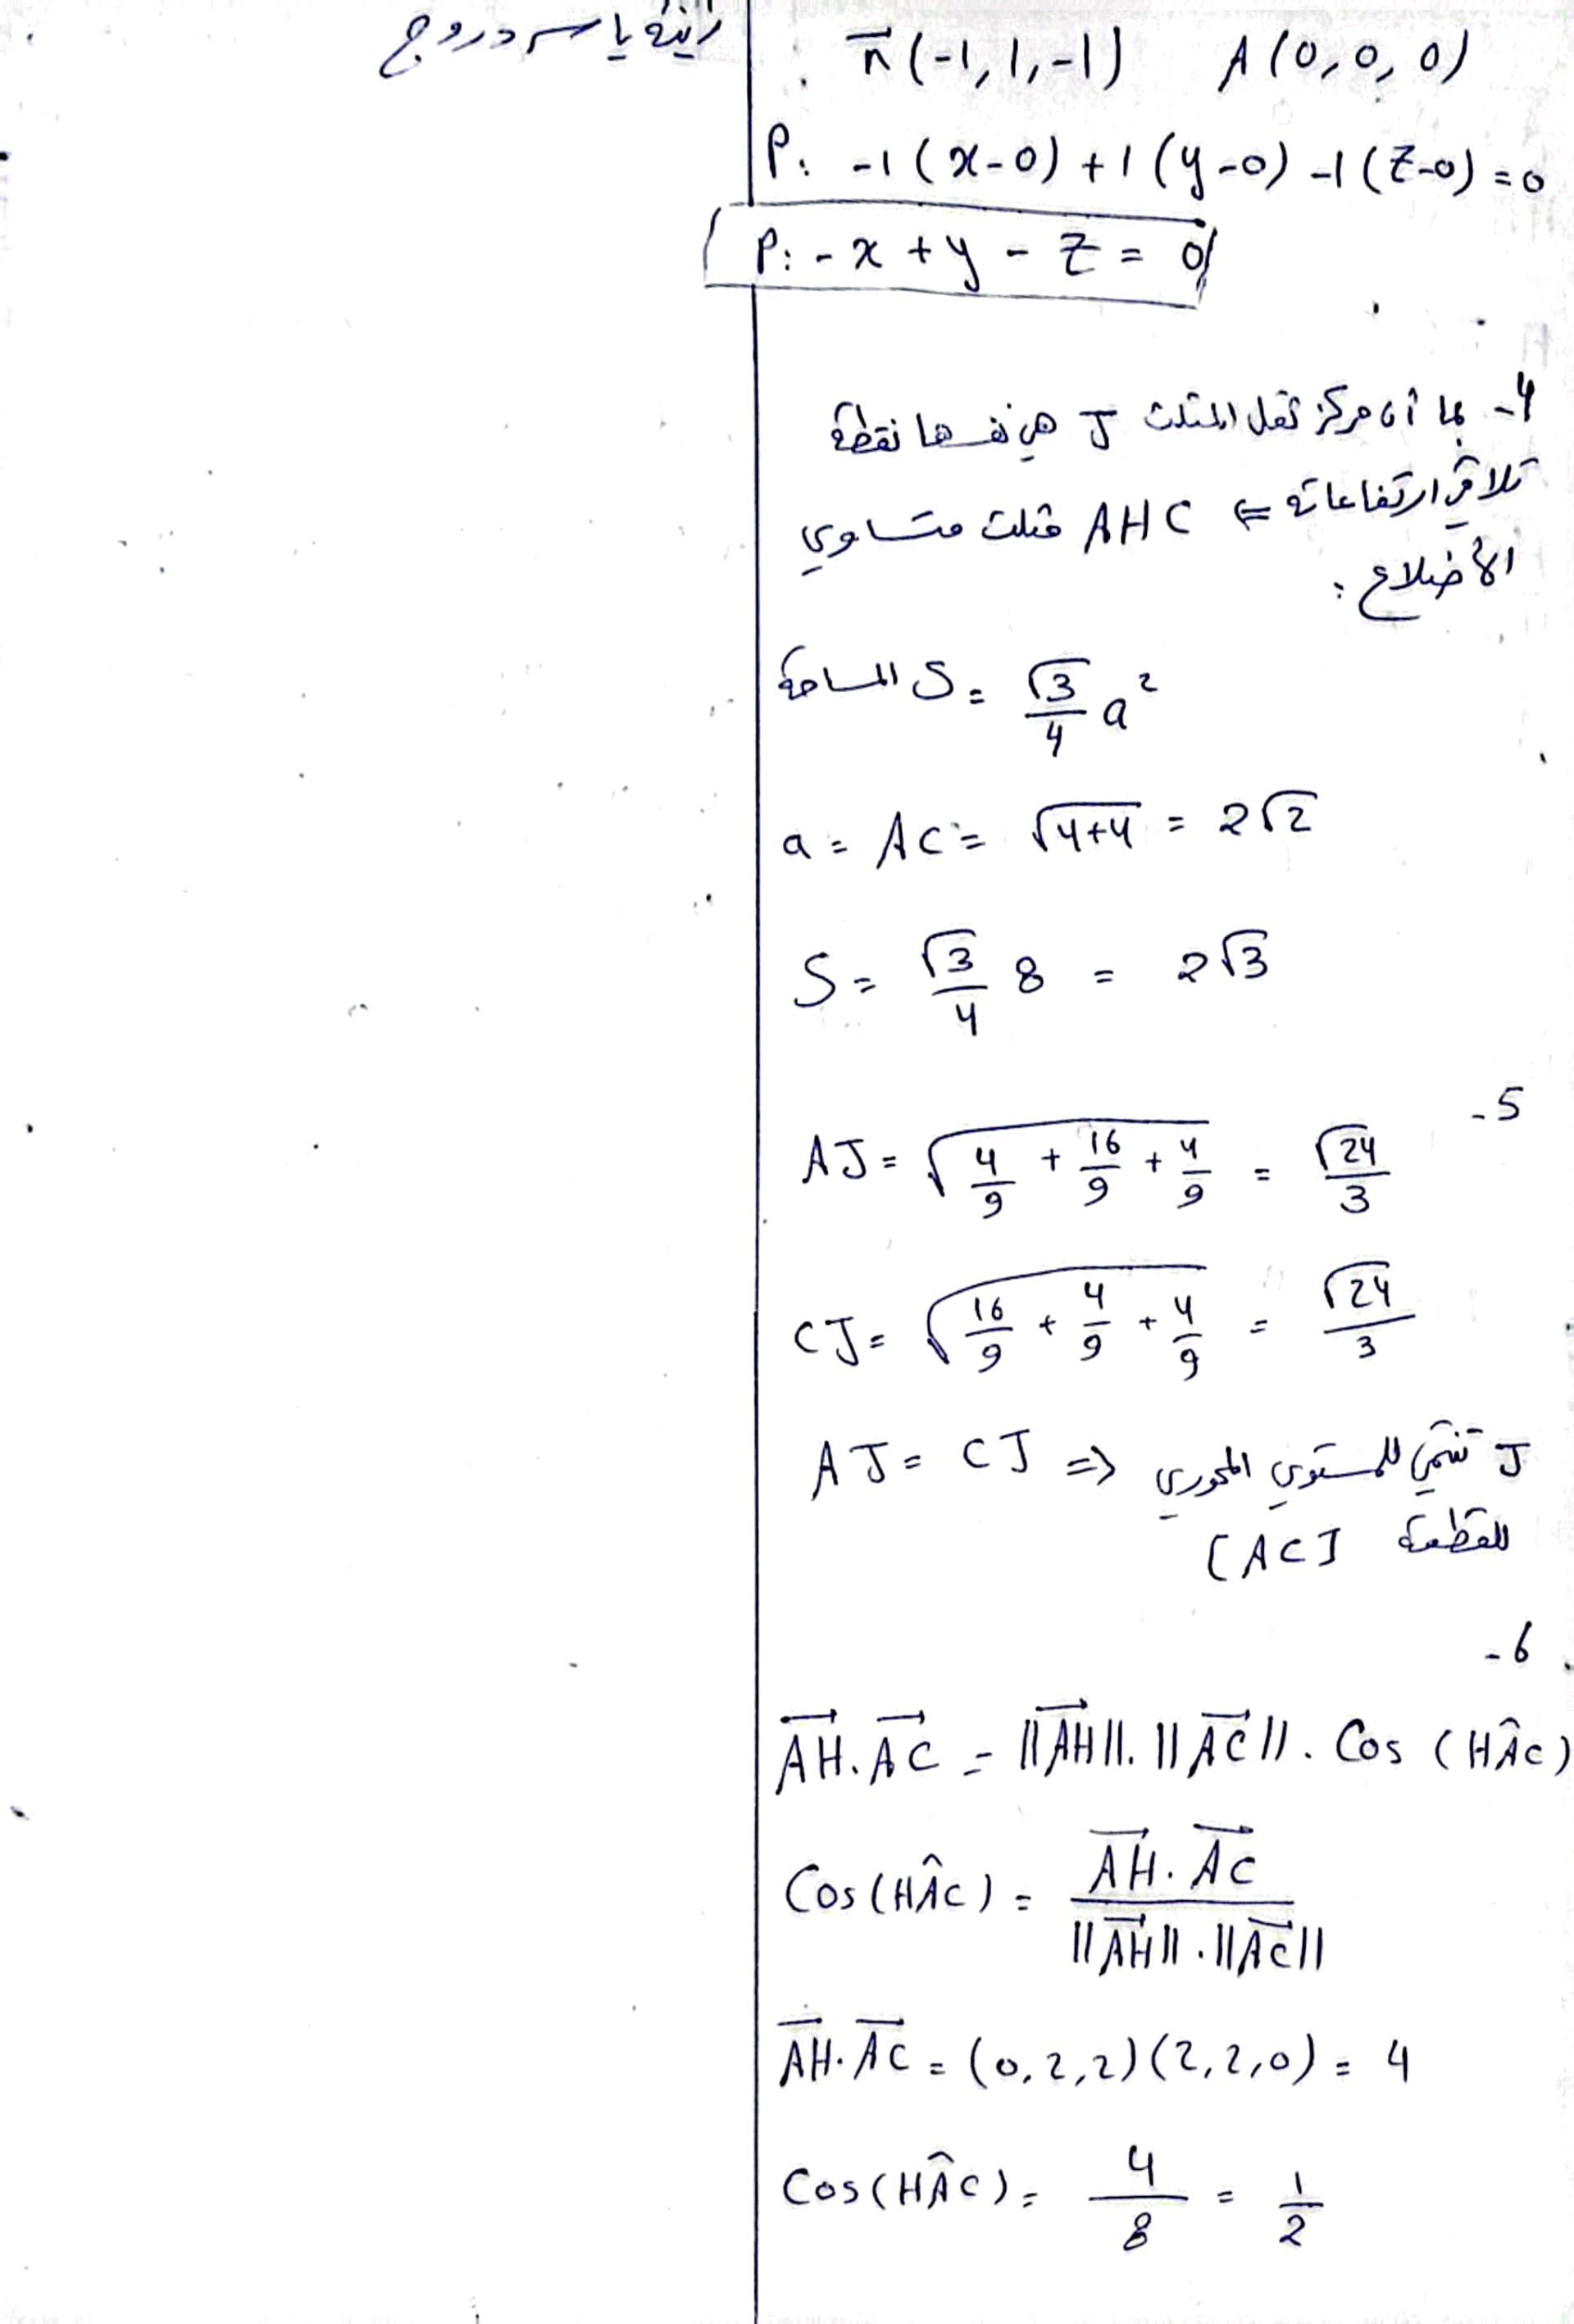 ياسر دروج
n⃗(-1,1,-1) A(0,0,0)
P: -1(x-0)+1(y-0)-1(z-0)=0
P: -x+y-z=0
4- بما أن مركز ثقل المثلث J هي نفسها نقطة
تلاقي ارتفاعاته ⇐ AHC مثلث متساوي
الأضلاع :
المساحة S = √3/4 a²
a = AC = √(4+4) = 2√2
S = √3/4 8 = 2√3
5-
AJ = √(4/9 + 16/9 + 4/9) = √24/3
CJ = √(16/9 + 4/9 + 4/9) = √24/3
AJ = CJ ⇒ J تنتمي للمستوي المحوري
للقطعة [AC]
6-
AH⃗.AC⃗ = ||AH⃗||.||AC⃗||.Cos(HÂC)
Cos(HÂC) = AH⃗.AC⃗ / ||AH⃗||.||AC⃗||
AH⃗.AC⃗ = (0,2,2)(2,2,0) = 4
Cos(HÂC) = 4/8 = 1/2